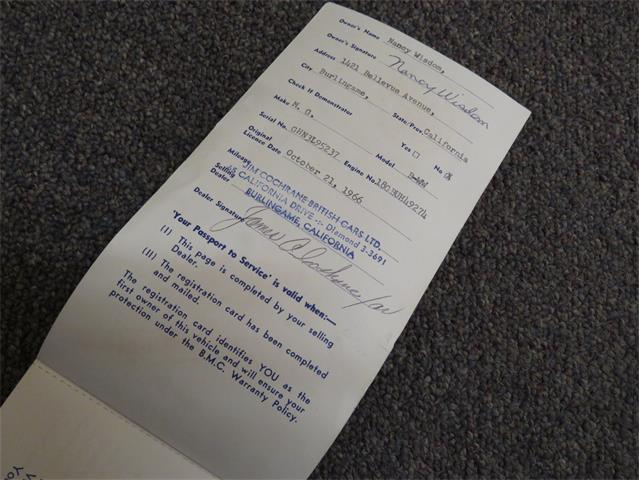 Owner's Name Nancy Wisdom,
Owner's Signature Nancy Wisdom
Address 1421 Bellevue Avenue,
City Burlingame, State/Prov. California
Check If Demonstrator Yes No
Make M. G. Model
Serial No. GHN3L95237 Engine No.
Original
Licence Date October 21, 1966
Mileage
Selling
Dealer
JIM COCHRANE BRITISH CARS LTD.
CALIFORNIA DRIVE -:- Diamond 3-3691
BURLINGAME, CALIFORNIA
Dealer Signature James C Cochrane
'Your Passport to Service' is valid when:—
(I) This page is completed by your selling
Dealer.
(II) The registration card has been completed
and mailed.
The registration card identifies YOU as the
first owner of this vehicle and will ensure your
protection under the B.M.C. Warranty Policy.